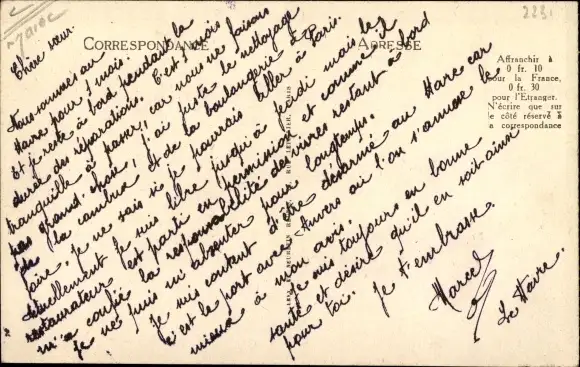 Maroc
223.
CORRESPONDANCE
ADRESSE
Affranchir à
0 fr. 10
pour la France,
0 fr. 30
pour l'Etranger.
N'écrire que sur
le côté réservé à
la correspondance
Chère sœur.
Nous sommes au
Havre pour 1 mois.
Et je reste à bord pendant la
durée des réparations. C'est 1 mois
tranquille à passer, car nous ne faisons
pas grand chose, j'ai juste le nettoyage
de la cambuse et de la boulangerie à
faire, je ne sais si je pourrais aller à Paris.
Actuellement je suis libre jusqu'à mais le
restaurateur est parti en permission et comme il
m'a confié la responsabilité des vivres restant à bord
je ne puis m'absenter pour longtemps.
Je suis content d'être désarmé au Havre car
c'est le port avec Anvers où l'on s'amuse le
mieux à mon avis.
Je suis toujours en bonne
santé et désire qu'il en soit ainsi
pour toi. Je t'embrasse.
Marcel
Le Havre.